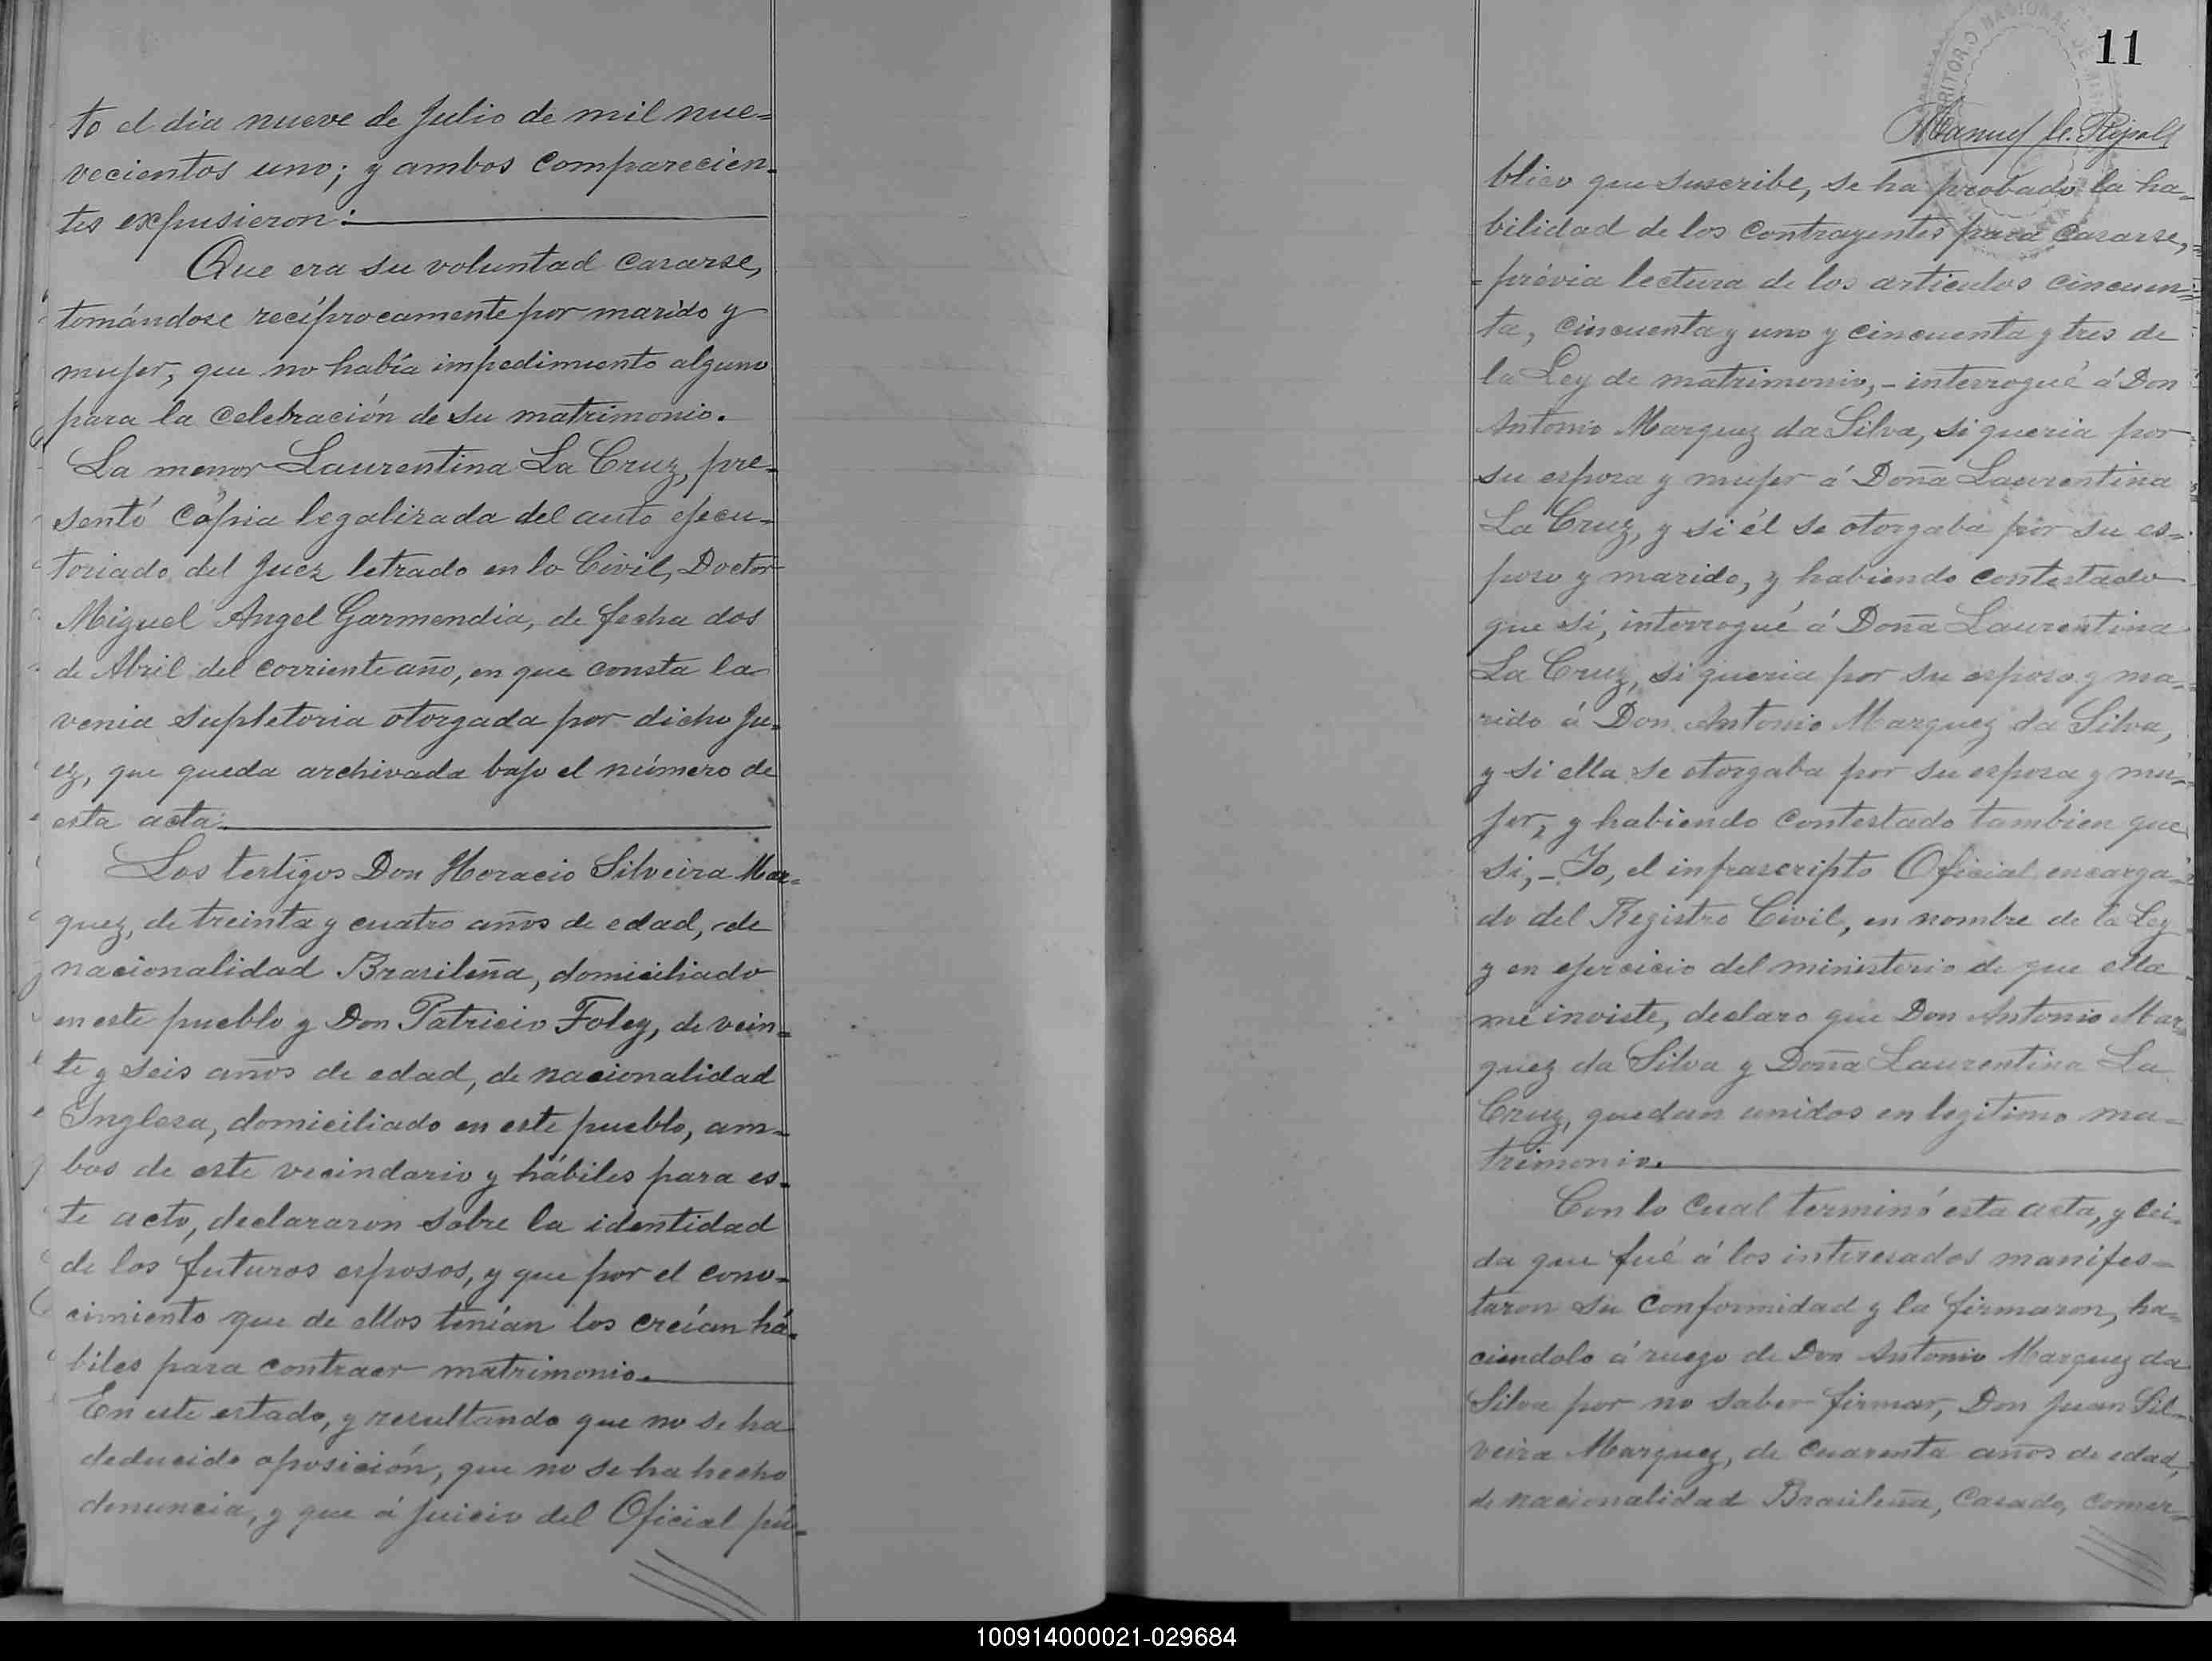 to el dia nueve de Julio de mil nue=
vecientos uno; y ambos comparecien-
tes expusieron:
Que era su voluntad casarse,
tomándose recíprocamente por marido y
mujer, que no había impedimento alguno
para la celebración de su matrimonio.
La menor Laurentina La Cruz, pre-
sentó cópia legalizada del auto ejecu-
toriado del Juez letrado en lo Civil, Doctor
Miguel Angel Garmendia, de fecha dos
de Abril del corriente año, en que consta la
venia supletoria otorgada por dicho Ju-
ez, que queda archivada bajo el número de
esta acta.
Los testigos Don Horacio Silveira Mar=
quez, de treinta y cuatro años de edad, de
nacionalidad Brasileña, domiciliado
en este pueblo y Don Patricio Foley, de vein=
te y seis años de edad, de nacionalidad
Inglesa, domiciliado en este pueblo, am-
bos de este vecindario y hábiles para es-
te acto, declararon sobre la identidad
de los futuros esposos, y que por el cono-
cimiento que de ellos tenían los creían há-
biles para contraer matrimonio.
En este estado, y resultando que no se ha
deducido oposición, que no se ha hecho
denuncia, y que á juicio del Oficial pú=
11
Manuel
blico que suscribe, se ha probado la ha-
bilidad de los contrayentes para casarse,
prévia lectura de los articulos cincuen=
ta, cincuenta y uno y cincuenta y tres de
la Ley de matrimonio,- interrogué á Don
Antonio Marquez da Silva, si queria por
su esposa y mujer á Doña Laurentina
La Cruz, y si él se otorgaba por su es-
poso y marido, y habiendo contestado
que sí, interrogué á Doña Laurentina
La Cruz, si queria por su esposo y ma-
rido á Don Antonio Marquez da Silva,
y si ella se otorgaba por su esposa y mu-
jer, y habiendo contestado tambien que
si,- Yo, el infrascripto Oficial encarga-
do del Registro Civil, en nombre de la Ley
y en ejercicio del ministerio de que ella
me inviste, declaro que Don Antonio Mar=
quez da Silva y Doña Laurentina La
Cruz, quedan unidos en legitimo ma-
trimonio.
Con lo cual terminó esta acta, y lei-
da que fué á los interesados manifes-
taron su conformidad y la firmaron, ha=
ciendolo á ruego de Don Antonio Marquez da
Silva por no saber firmar, Don Juan Sil-
veira Marquez, de cuarenta años de edad,
de nacionalidad Brasileña, Casado, comer=
100914000021-029684